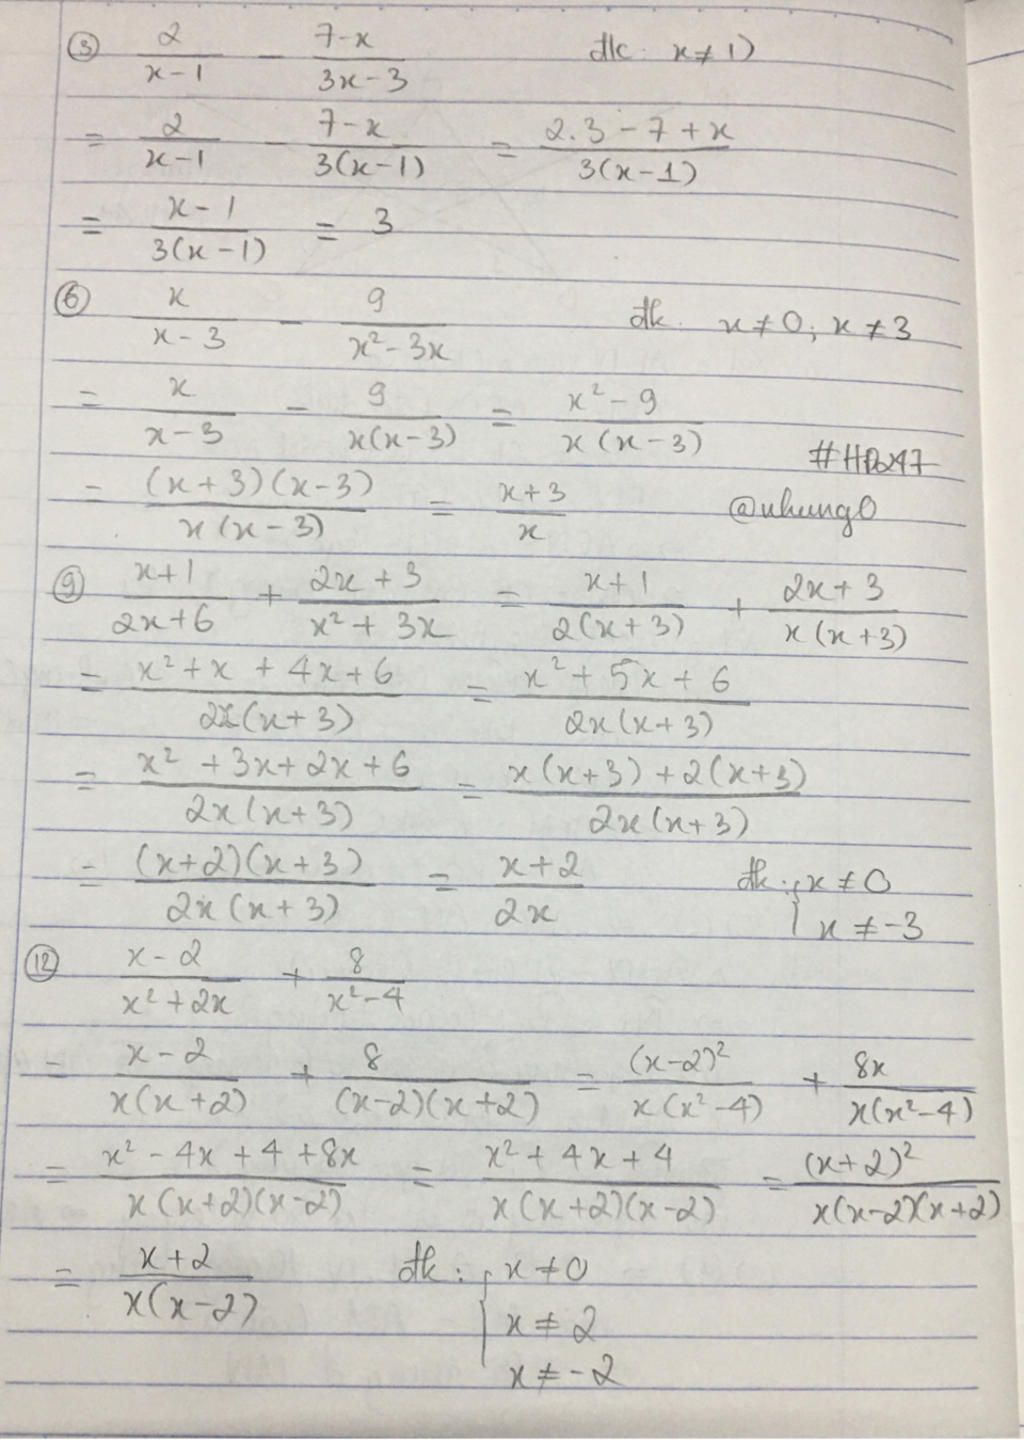 ③ 2/(x-1) - (7-x)/(3x-3) đk: x≠1)
= 2/(x-1) - (7-x)/(3(x-1)) = (2.3-7+x)/(3(x-1))
= (x-1)/(3(x-1)) = 3
⑥ x/(x-3) - 9/(x²-3x) đk: x≠0; x≠3
= x/(x-3) - 9/(x(x-3)) = (x²-9)/(x(x-3))
= ((x+3)(x-3))/(x(x-3)) = (x+3)/x
@nhung0
⑨ (x+1)/(2x+6) + (2x+3)/(x²+3x) = (x+1)/(2(x+3)) + (2x+3)/(x(x+3))
= (x²+x+4x+6)/(2x(x+3)) = (x²+5x+6)/(2x(x+3))
= (x²+3x+2x+6)/(2x(x+3)) = (x(x+3)+2(x+3))/(2x(x+3))
= ((x+2)(x+3))/(2x(x+3)) = (x+2)/(2x) đk: { x≠0
x≠-3
⑫ (x-2)/(x²+2x) + 8/(x²-4)
= (x-2)/(x(x+2)) + 8/((x-2)(x+2)) = (x-2)²/(x(x²-4)) + 8x/(x(x²-4))
= (x²-4x+4+8x)/(x(x+2)(x-2)) = (x²+4x+4)/(x(x+2)(x-2)) = (x+2)²/(x(x-2)(x+2))
= (x+2)/(x(x-2)) đk: { x≠0
x≠2
x≠-2